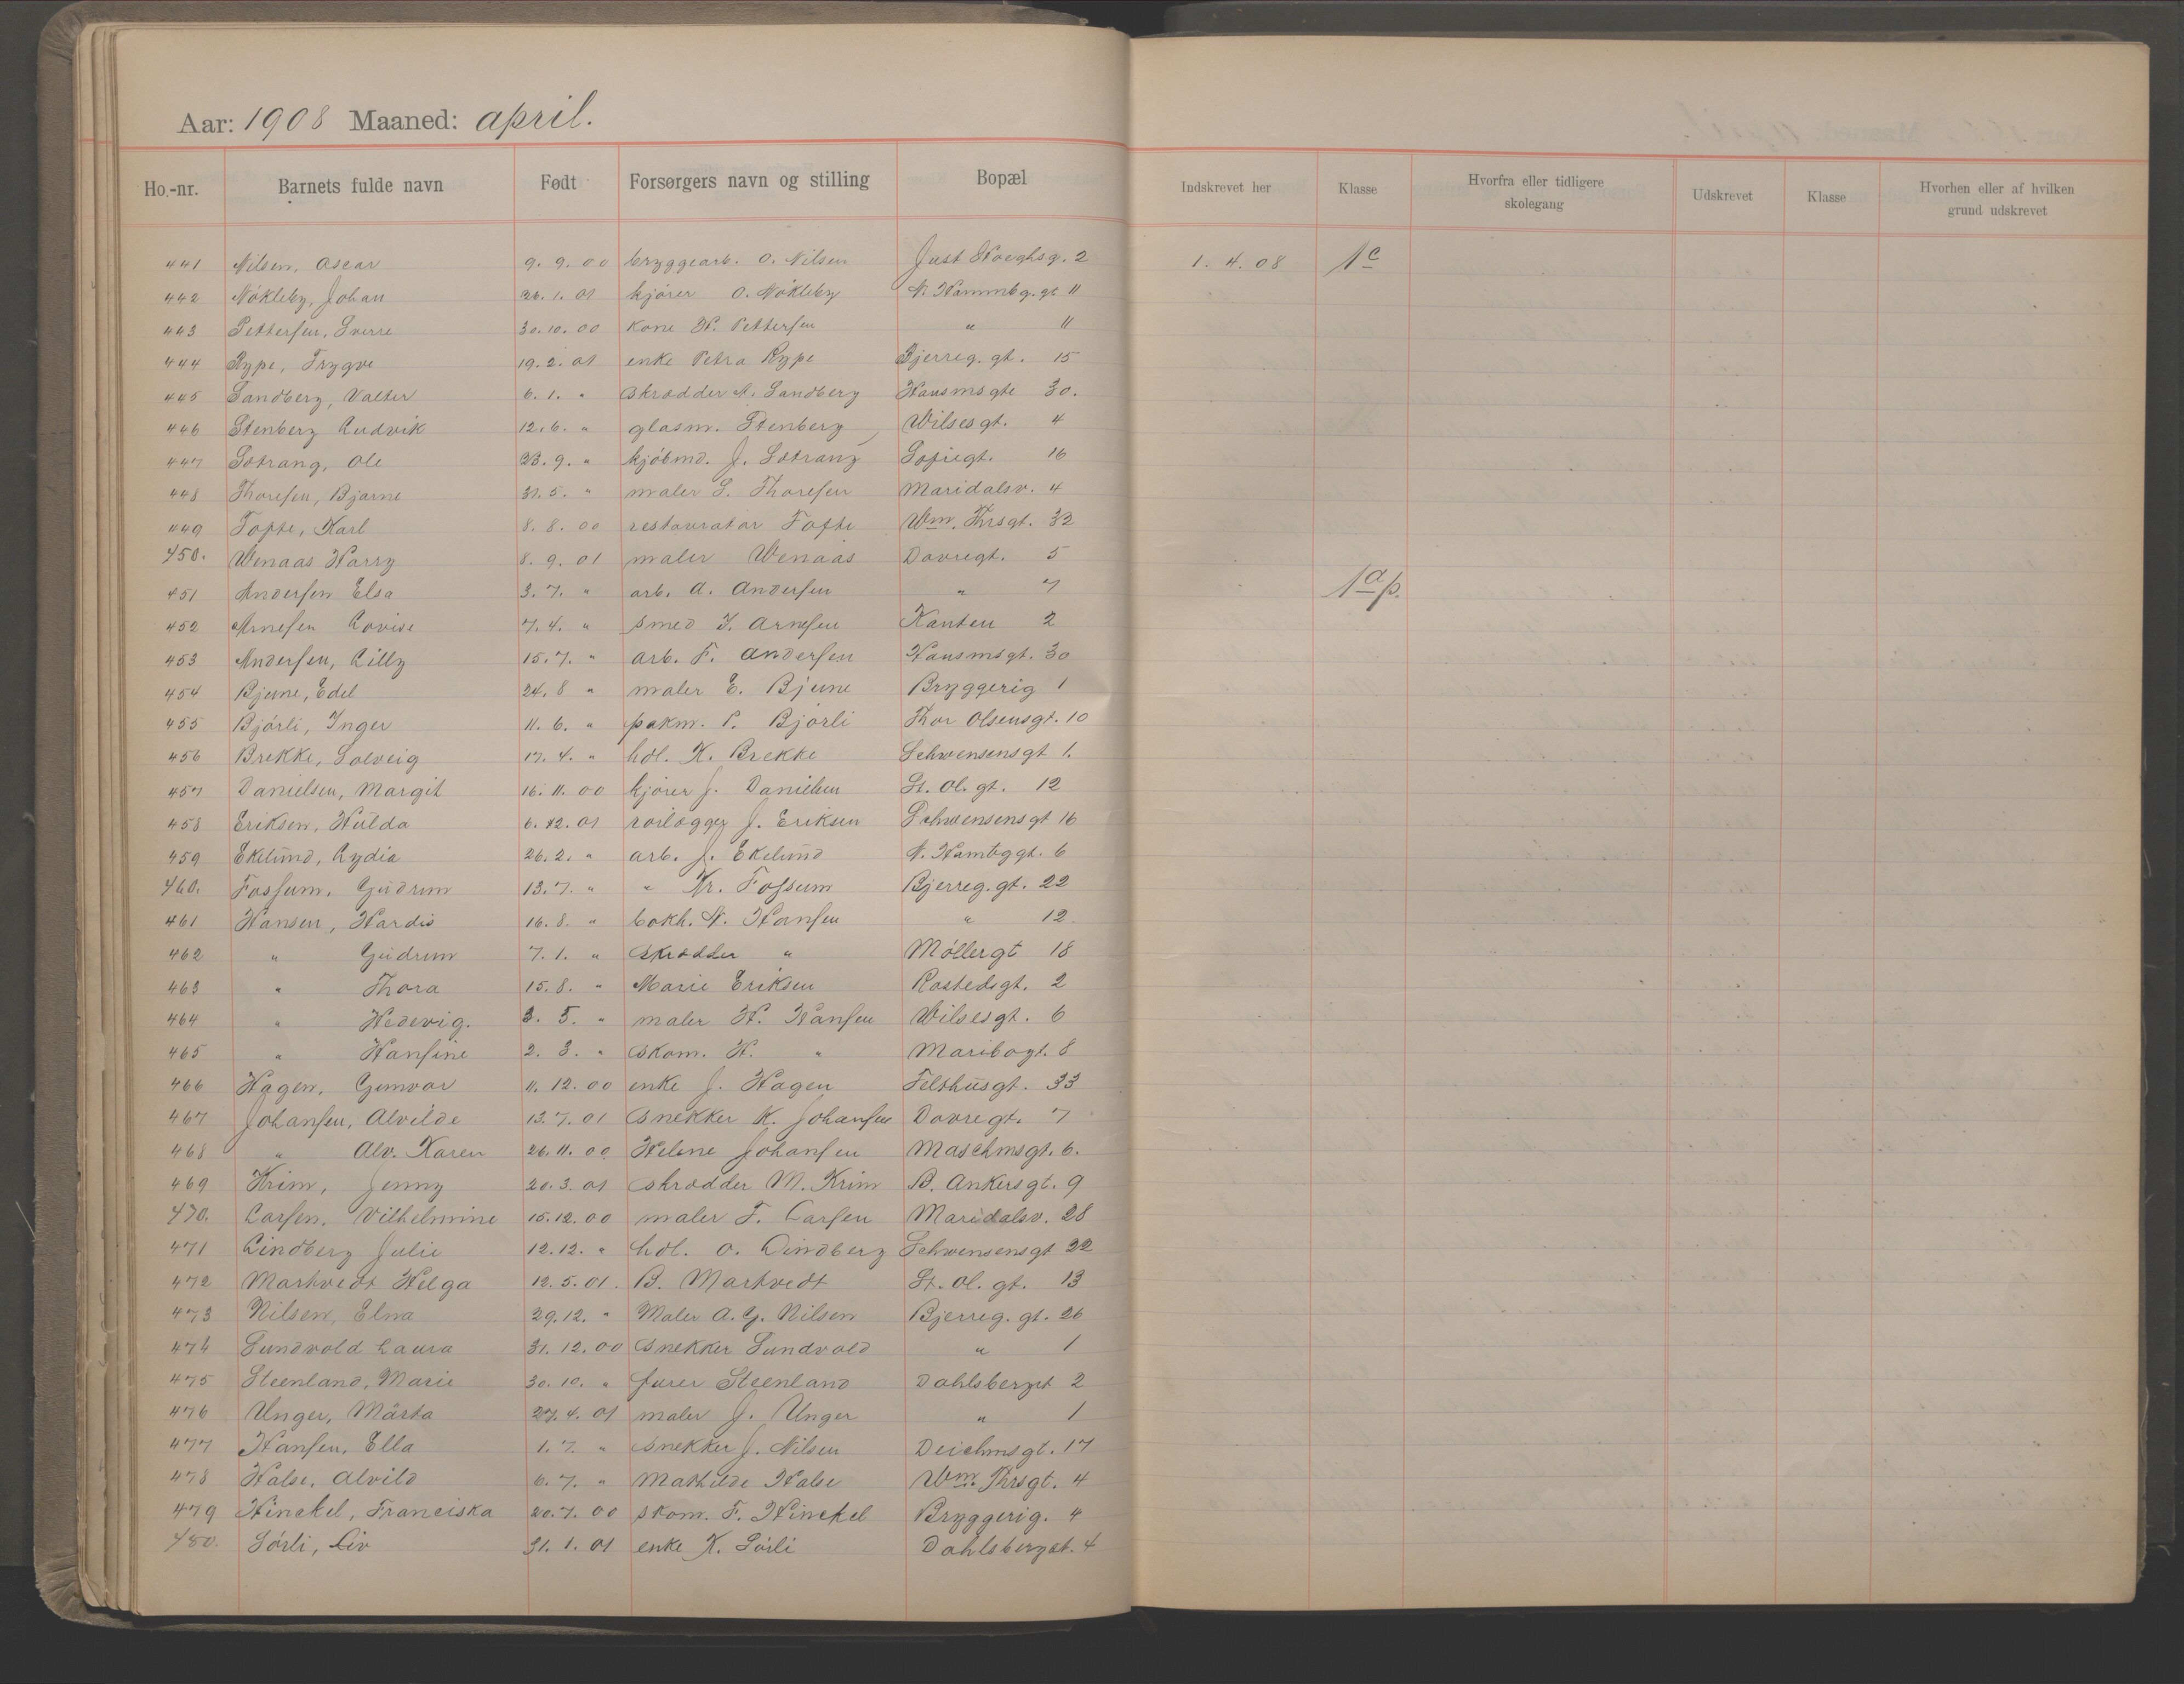 Aar: 1908 Maaned: april.
Ho.-nr. Barnets fulde navn Født Forsørgers navn og stilling Bopæl Indskrevet her Klasse Hvorfra eller tidligere skolegang Udskrevet Klasse Hvorhen eller af hvilken grund udskrevet
441 Nilsen, Oscar 9. 9. 00 bryggearb. O. Nilsen Just Høeghsg. 2 1. 4. 08 1c
442 Nökleby, Johan 26. 1. 01 kjörer O. Nökleby N. Hammbg. gt 11
443 Pettersen, Sverre 30. 10. 00 kone H. Pettersen " 11
444 Rype, Trygve 19. 2. 01 enke Petra Rype Bjerreg. gt. 15
445 Sandberg, Valter 6. 1. " skrædder A. Sandberg Hausmsgte 30.
446 Stenberg Ludvik 12. 6. " glasm. Stenberg Wilsesgt. 4
447 Sotrang, Ole 23. 9. " kjöbmd. J. Sotrang Sofiegt. 16
448 Thoresen, Bjarne 31. 5. " maler S. Thoresen Maridalsv. 4
449 Tofte, Karl 8. 8. 00 restauratør Tofte Wm. Thrsgt. 32
450. Wenaas Harry 8. 9. 01 maler Wenaas Dovregt. 5
451 Andersen Elsa 3. 7. " arb. A. Andersen " 7 1a p.
452 Arnesen Lovise 7. 4. " smed J. Arnesen Kanten 2
453 Andersen, Lilly 15. 7. " arb. F. Andersen Hausmsgt. 30
454 Bjune, Edel 24. 8 " maler E. Bjune Bryggerig 1
455 Bjórli, Inger 11. 6. " pakm. P. Bjórli Thor Olsensgt. 10
456 Brekke, Solveig 17. 4. " hdl. K. Brekke Schwensensgt 1.
457 Danielsen, Margit 16. 11. 00 kjörer J. Danielsen St. Ol. gt. 12
458 Eriksen, Hulda 6. 12. 01 rörlægger J. Eriksen Schwensensgt 16
459 Ekelund, Lydia 26. 2. " arb. J. Ekelund N. Hambggt. 6
460. Fossum, Gudrun 13. 7. " " Kr. Fossum Bjerreg. gt. 22
461 Hansen, Hardis 16. 8. " bokh. N. Hansen " 12
462 " Gudrun 7. 1. " skrædder " Möllergt 18
463 " Thora 15. 8. " Marie Eriksen Rostedsgt. 2
464 " Hedevig. 3. 5. " maler H. Hansen Wilsesgt. 6
465 " Hansine 2. 3. " skom. H. " Maribogt. 8
466 Hagen, Gunvor 11. 12. 00 enke J. Hagen Telthusgt. 33
467 Johansen, Alvilde 13. 7. 01 snekker K. Johansen Dovregt. 7
468 " Alv. Karen 26. 11. 00 Helene Johansen Maschmsgt. 6.
469 Krim, Jenny 20. 3. 01 skrædder M. Krim B. Ankersgt. 9
470. Larsen, Vilhelmine 15. 12. 00 maler T. Larsen Maridalsv. 28
471 Lindberg Julie 12. 12. " hdl. O. Lindberg Schwensensgt 22
472 Markvedt Helga 12. 5. 01. B. Markvedt St. Ol. gt. 13
473 Nilsen, Elna 29. 12. " Maler A. G. Nilsen Bjerreg. gt. 26
474 Sundvold Laura 31. 12. 00 snekker Sundvold " 1
475 Steenland, Marie 30. 10. " fører Steenland Dahlsberget 2
476 Unger, Märta 27. 4. 01 maler J. Unger " 1
477 Hansen, Ella 1. 7. " snekker J. Nilsen Deichmsgt. 17
478 Halse, Alvild 6. 7. " Mathilde Halse Wm. Thrsgt. 4
479 Hinckel, Franciska 20. 7. 00 skom. F. Hinckel Bryggerig. 4
480. Sörli, Liv 31. 1. 01 enke K. Sörli Dahlsberget. 4